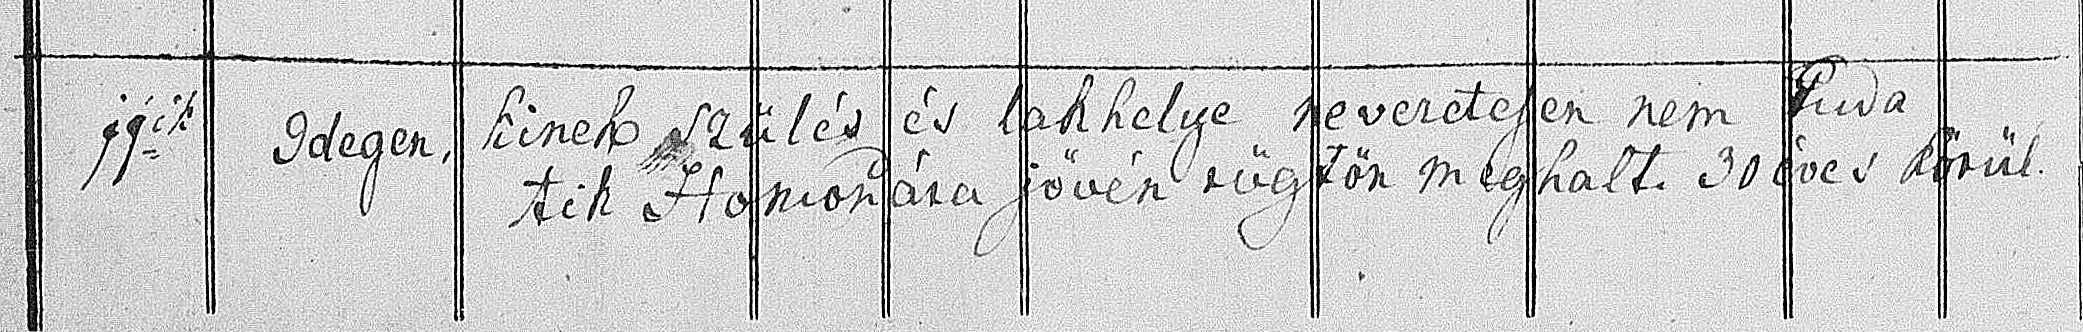 11ik Idegen, kinek szülés és lakhelye neveretesen nem Tuda
tik Homonára jövén rögtön meghalt. 30 éves körül.